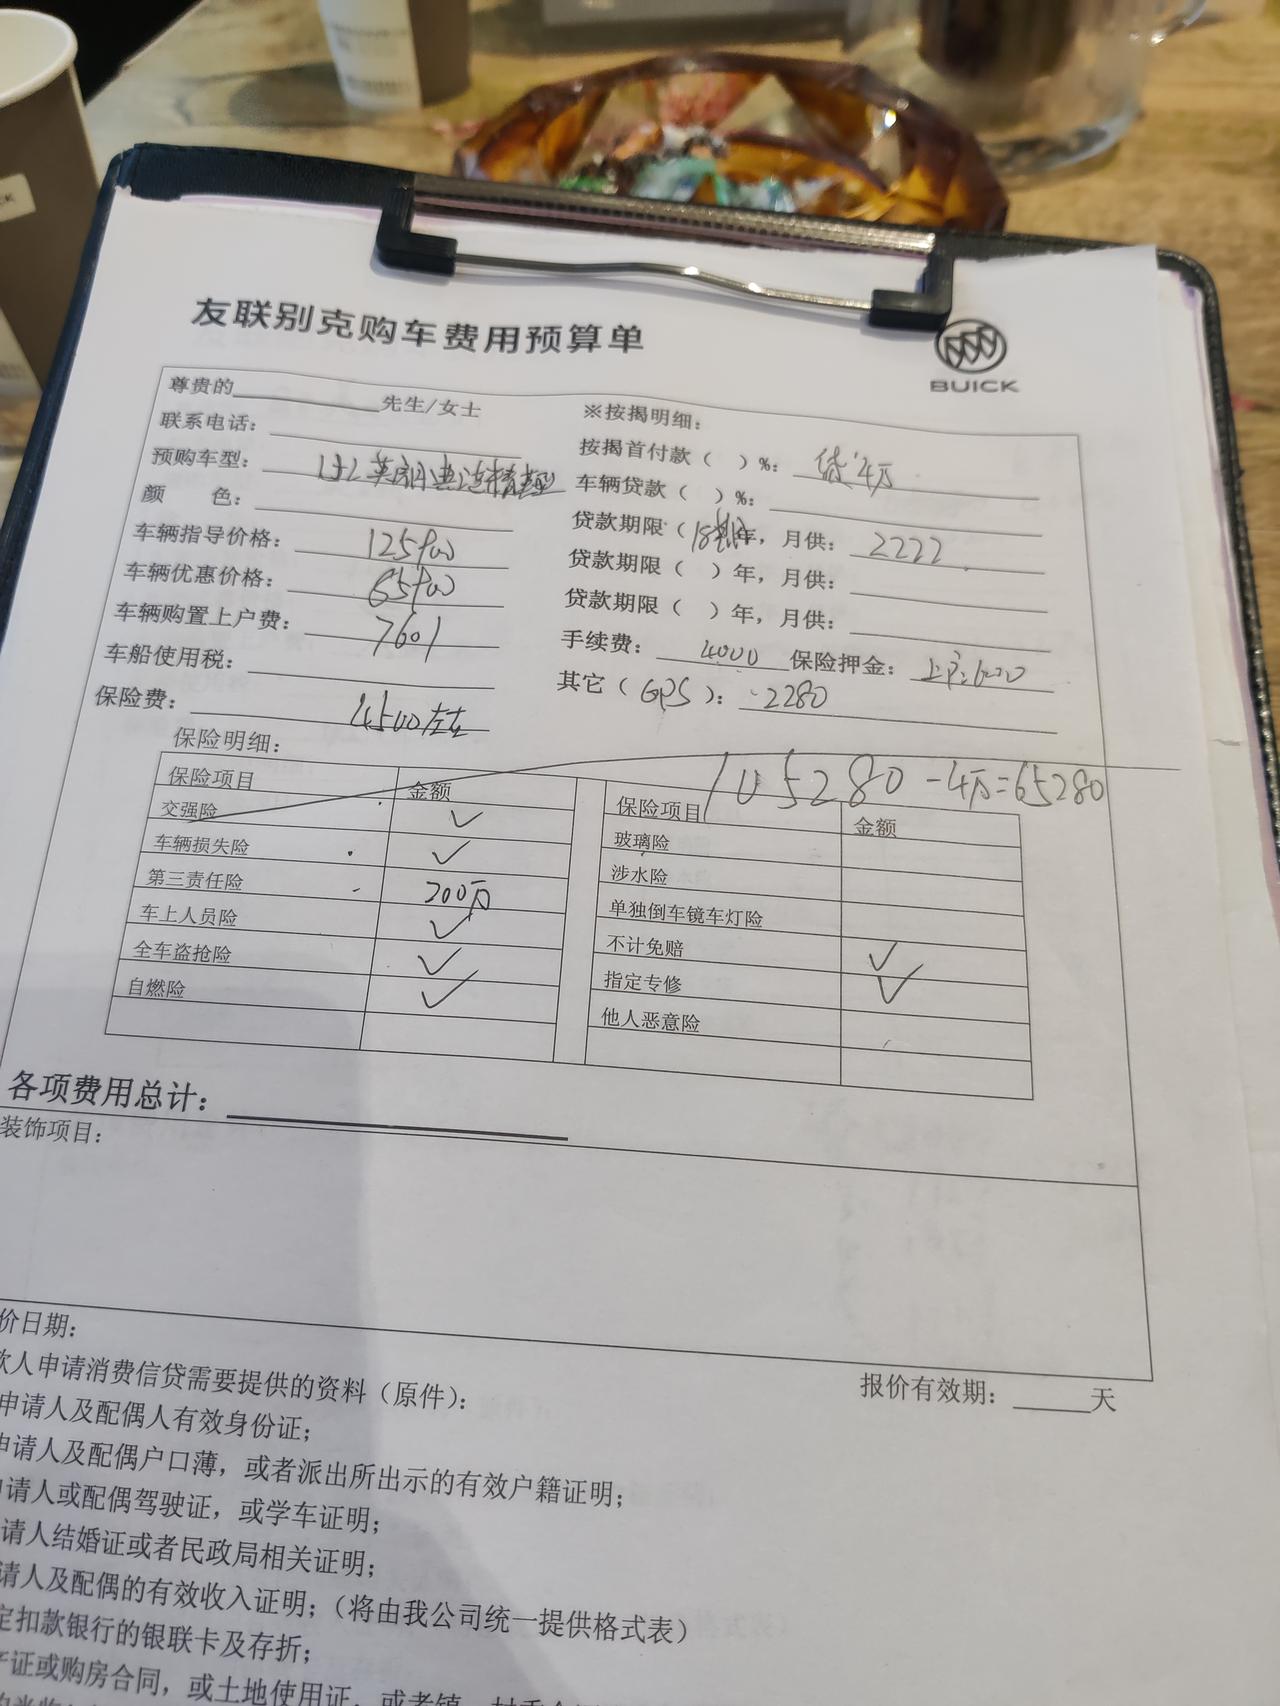 友联别克购车费用预算单
BUICK
尊贵的 先生/女士
联系电话:
预购车型: 1.5L 英朗
颜 色:
车辆指导价格: 125900
车辆优惠价格: 85900
车辆购置上户费: 7601
车船使用税:
保险费: 4500左右
※按揭明细:
按揭首付款( )%: 贷:4万
车辆贷款( )%:
贷款期限(18期)年,月供: 2222
贷款期限( )年,月供:
贷款期限( )年,月供:
手续费: 4000 保险押金: 上户:1600
其它(GPS): 2280
105280-4万=65280
保险明细:
保险项目 金额 保险项目 金额
交强险 ✓ 玻璃险
车辆损失险 ✓ 涉水险
第三责任险 200万 单独倒车镜车灯险
车上人员险 ✓ 不计免赔 ✓
全车盗抢险 ✓ 指定专修 ✓
自燃险 ✓ 他人恶意险
各项费用总计:
装饰项目:
价日期:
报价有效期: 天
款人申请消费信贷需要提供的资料(原件):
申请人及配偶人有效身份证;
申请人及配偶户口薄,或者派出所出示的有效户籍证明;
申请人或配偶驾驶证,或学车证明;
请人结婚证或者民政局相关证明;
请人及配偶的有效收入证明;(将由我公司统一提供格式表)
定扣款银行的银联卡及存折;
产证或购房合同,或土地使用证,或者镇、村